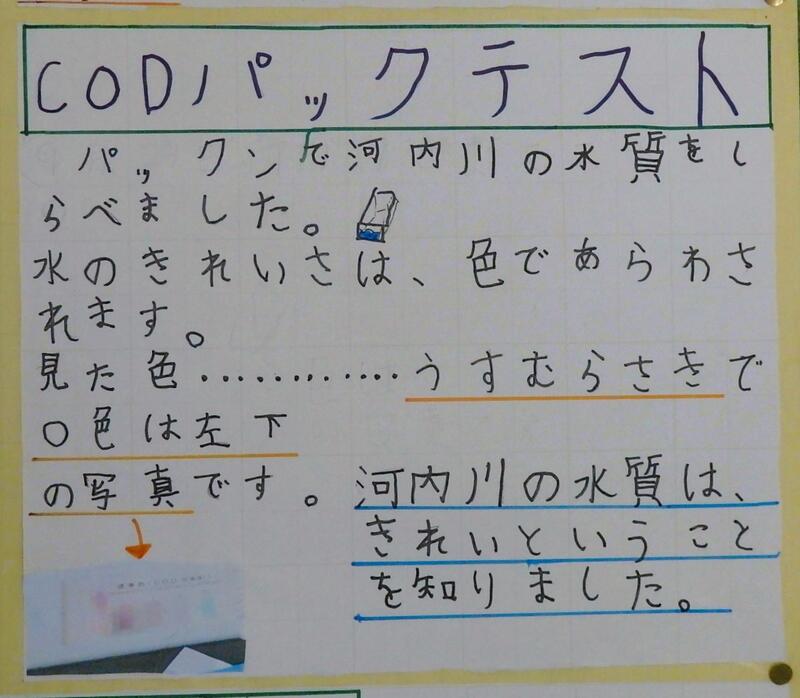 CODパックテスト
パックンで河内川の水質をし
らべました。
水のきれいさは、色であらわさ
れます。
見た色…………うすむらさきで
○色は左下
の写真です。
河内川の水質は、
きれいということ
を知りました。